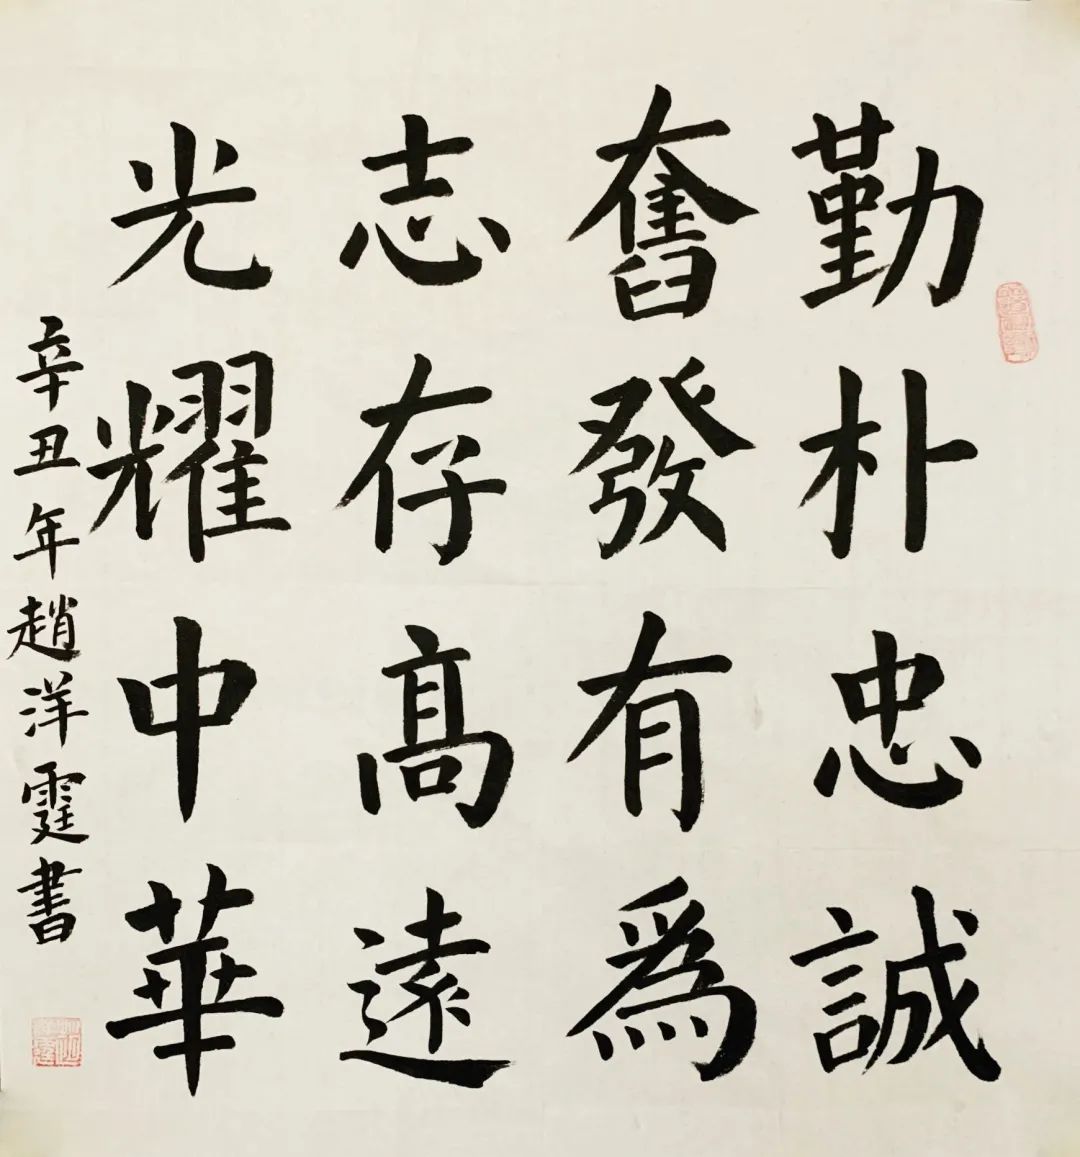 勤朴忠誠
奮發有爲
志存高遠
光耀中華
辛丑年趙洋霆書